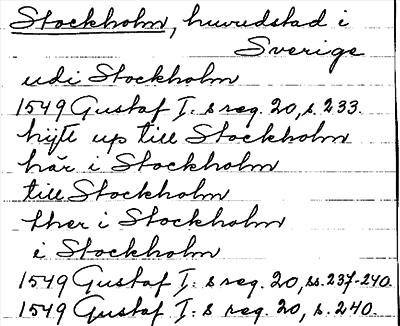 Stockholm, huvudstad i
Sverige
udi Stockholm
1549 Gustaf I: s reg. 20, s. 233.
hijtt up till Stockholm
här i Stockholm
till Stockholm
ther i Stockholm
i Stockholm
1549 Gustaf I: s reg. 20, ss. 237-240.
1549 Gustaf I: s reg. 20, s. 240.